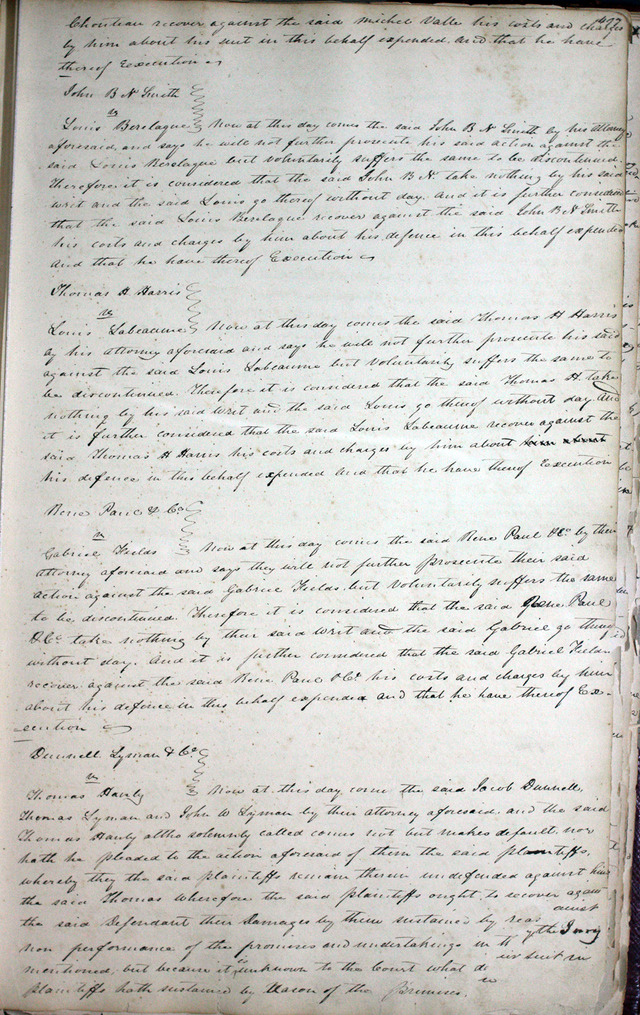 407
Christian recover against the said Michel Valle his costs and charges
by him about his suit in this behalf expended. and that he have
thereof Execution
John B N Smith
vs
Louis Berelague Now at this day comes the said John B N Smith by his attorney
aforesaid, and says he will not further prosecute his said action against the
said Louis Berelague but voluntarily suffers the same to be discontinued.
Therefore it is considered that the said John B N. take nothing by his said
writ and the said Louis go thereof without day. And it is further considered
that the said Louis Berelague recover against the said John B N Smith
his costs and charges by him about his defence in this behalf expended
and that he have thereof Execution
Thomas H Harris
vs
Louis Labeaume Now at this day comes the said Thomas H Harris
by his attorney aforesaid and says he will not further prosecute his said
against the said Louis Labeaume but voluntarily suffers the same to
be discontinued. Therefore it is considered that the said Thomas H. take
nothing by his said writ and the said Louis go thereof without day and
it is further considered that the said Louis Labeaume recover against the
said Thomas H Harris his costs and charges by him about
his defence in this behalf expended And that he have thereof Execution
Rene Paul & Co.
vs
Gabriel Fields Now at this day comes the said Rene Paul & Co. by their
attorney aforesaid and says they will not further prosecute their said
action against the said Gabriel Fields. but voluntarily suffers the same
to be discontinued. Therefore it is considered that the said Rene Paul
& Co. take nothing by their said writ and the said Gabriel go thereof
without day. And it is further considered that the said Gabriel Fields
recover against the said Rene Paul & Co. his costs and charges by him
about his defence in this behalf expended and that he have thereof Ex-
ecution
Dunnell Lyman & Co.
vs
Thomas Hanly Now at this day come the said Jacob Dunnell,
Thomas Lyman and John W Lyman by their attorney aforesaid. and the said
Thomas Hanly altho solemnly called comes not but makes default. nor
hath he pleaded to the action aforesaid of them the said plaintiffs,
whereby they the said plaintiffs remain therein undefended against him
the said Thomas Wherefore the said plaintiffs ought to recover against
the said Defendant their Damages by them sustained by reas
non performance of the promises and undertakings in th
mentioned, but because it is unknown to the Court what d
plaintiffs hath sustained by reason of the premises.